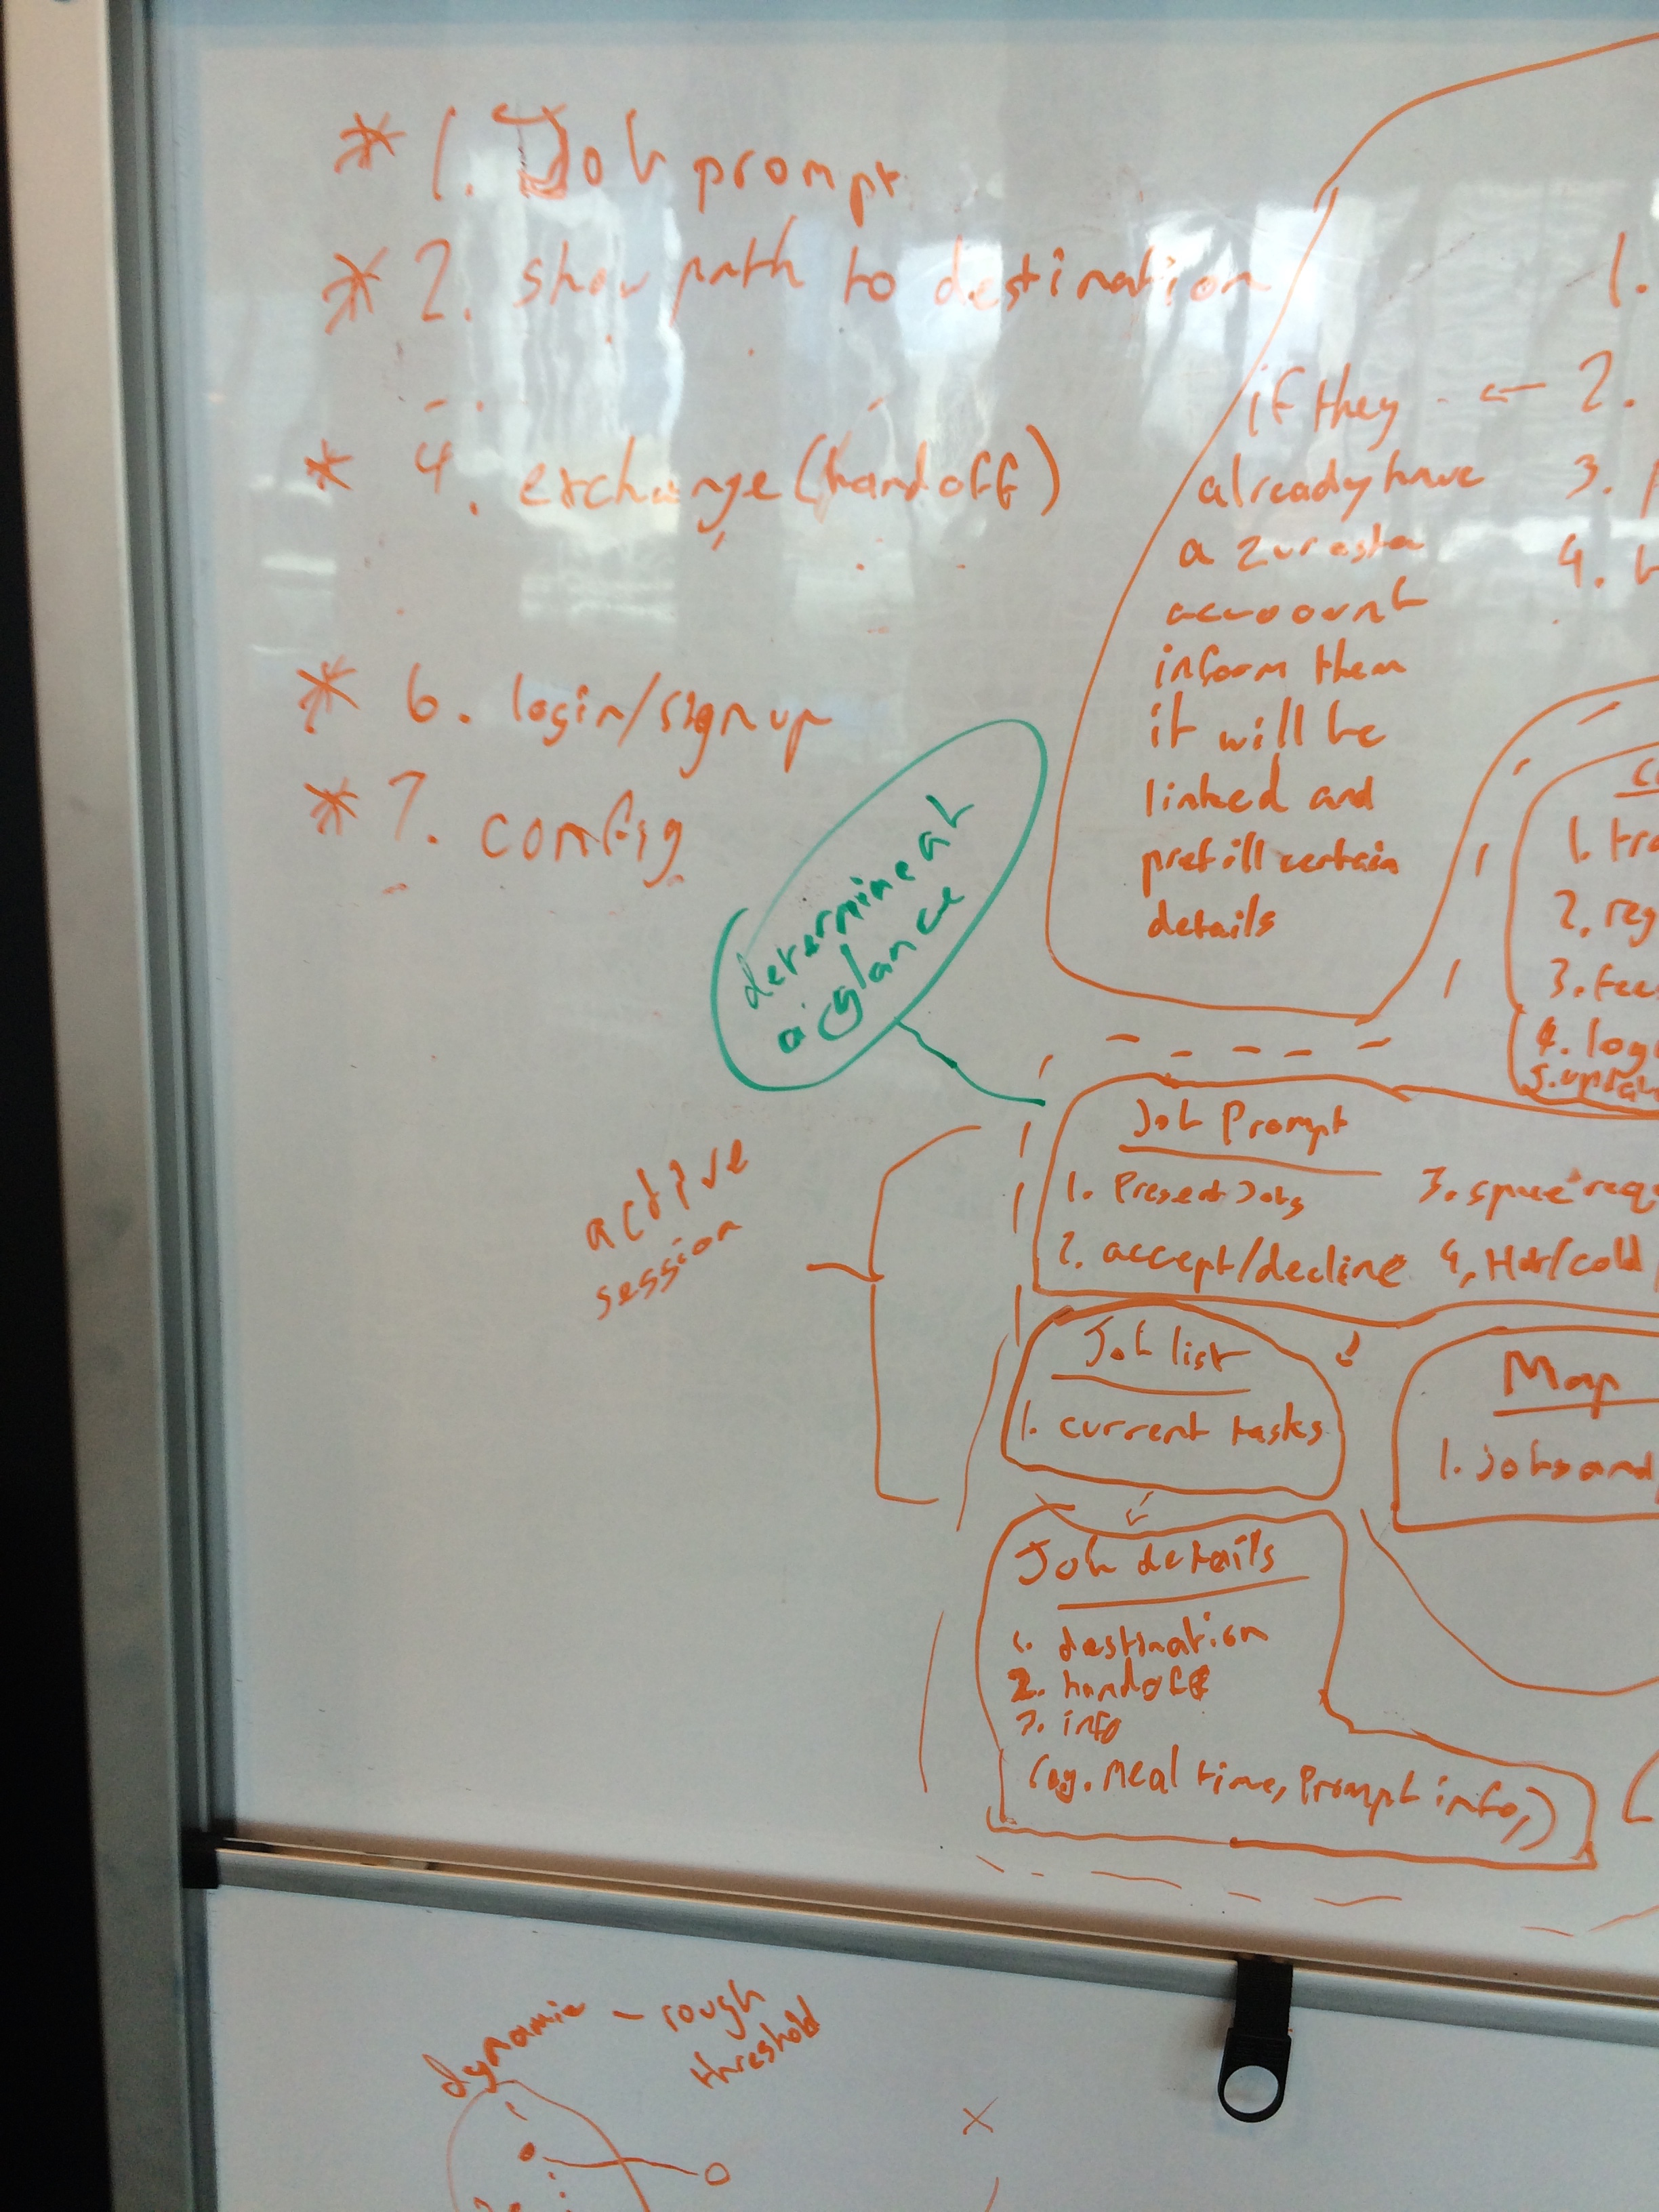 * 1. Job prompt
* 2. show path to destination
* 4. exchange (handoff)
* 6. login/signup
* 7. config
1.
if they ← 2.
already have
3.
a zurasta
4.
account
inform them
it will be
linked and
prefill certain
details
determine at
a glance
1.
2. reg
3. fee
4. log
5. upda
active
session
Job Prompt
1. Present Jobs
3. space req
2. accept/decline
4. Hot/cold
Job list
1. current tasks
Map
1. jobs and
Job details
1. destination
2. handoff
3. info
(eg. Meal time, Prompt info,)
dynamic - rough
threshold
x